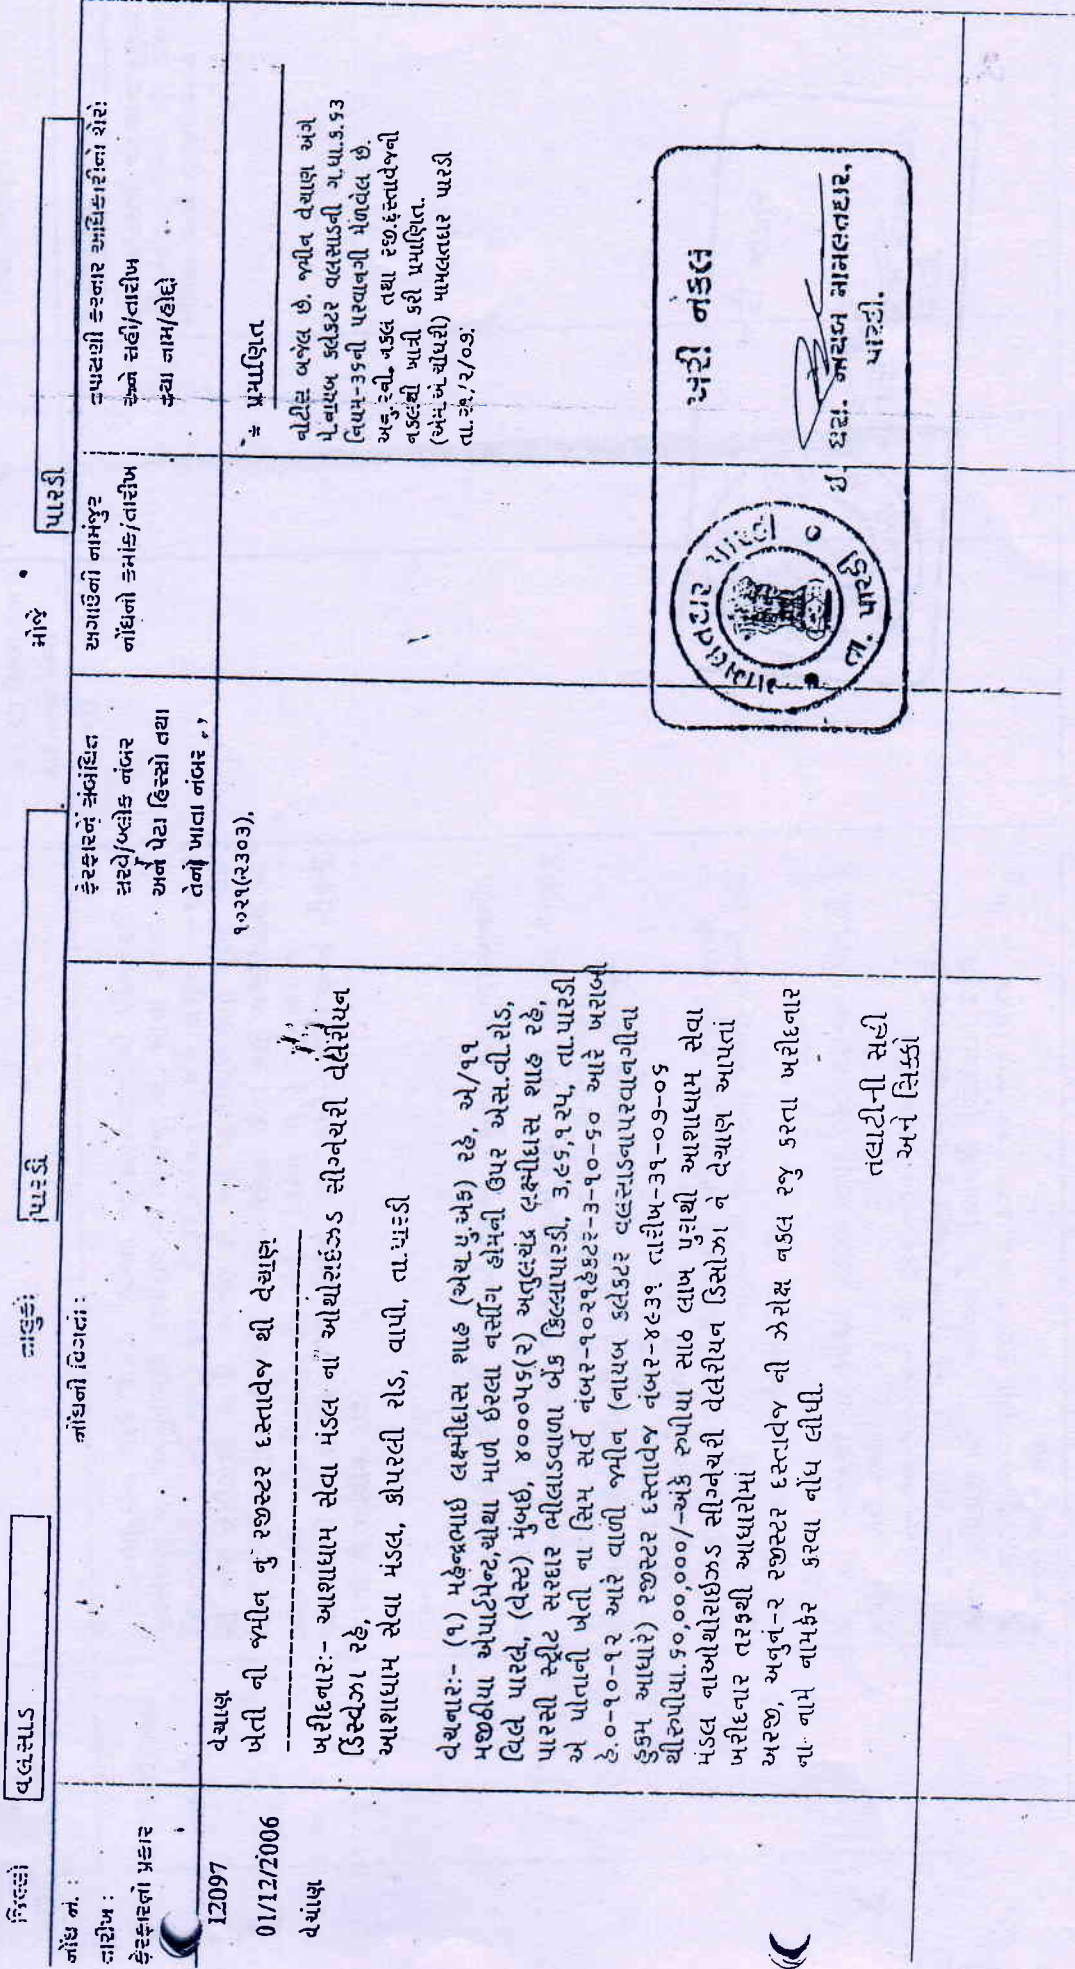 જિલ્લો વલસાડ તાલુકો પારડી મોજે પારડી
નોંધ નં. :
તારીખ :
ફેરફારનો પ્રકાર
નોંધની વિગતો :
ફેરફારને સંબંધિત
સરવે/બ્લોક નંબર
અને પેટા હિસ્સો તથા
તેનો ખાતા નંબર
અગાઉની નામંજુર
નોંધનો ક્રમાંક/તારીખ
તપાસણી કરનાર અધિકારીનો શેરો
અને સહી/તારીખ
તથા નામ/હોદ્દો
12097
01/12/2006
વેચાણ
વેચાણ
ખેતી ની જમીન નું રજીસ્ટર દસ્તાવેજ થી વેચાણ
--------------------
ખરીદનાર:- આશાધામ સેવા મંડલ ના ઓથોરાઈઝડ સીગ્નેચરી વેલેરીયન
ડિસ્વેઝા રહે,
આશાધામ સેવા મંડલ, કોપરલી રોડ, વાપી, તા.પારડી
વેચનાર:- (૧) મહેન્દ્રભાઈ લક્ષ્મીદાસ શાહ (એચ.યુ.એફ) રહે, એ/૧૧
મજીઠીયા એપાર્ટમેન્ટ,ચોથા માળે ઈરલા નર્સીગ હોમની ઉપર એસ.વી.રોડ,
વિલે પારલે, (વેસ્ટ) મુંબઈ, ૪૦૦૦૫૬(૨) અતુલચંદ્ર લક્ષ્મીદાસ શાહ રહે,
પારસી સ્ટ્રીટ સરદાર ભીલાડવાળા બેંક કિલ્લાપારડી, ૩,૯૬,૧૨૫, તા.પારડી
એ પોતાની ખેતી ના સિમ સર્વે નંબર-૧૦૨૧હેકટર-૩-૧૦-૬૦ આરે ખરાબો
હે.૦-૧૦-૧૨ આરે વાળી જમીન (નાયબ કલેકટર વલસાડનાપરવાનગીના
હુકમ આધારે) રજીસ્ટર દસ્તાવેજ નંબર-૪૯૩૧ તારીખ-૩૧-૦૭-૦૬
થીરુપીયા.૬૦,૦૦,૦૦૦/-અંકે રુપીયા સાઠ લાખ પુરાથી આશાધામ સેવા
મંડલ નાઓથોરાઈઝડ સીગ્નેચરી વેલેરીયન ડિસોઝા ને વેચાણ આપતાં
ખરીદનાર તરફથી આધારોમાં
અરજી, અનુનં-૨ રજીસ્ટર દસ્તાવેજ ની ઝેરોક્ષ નકલ રજુ કરતા ખરીદનાર
ના નામે નામફેર કરવા નોંધ લીધી.
તલાટીની સહી
અને સિક્કો
૧૦૨૧(૨૩૦૩),
પ્રમાણિત
નોટીસ બજેલ છે. જમીન વેચાણ અંગે
મે.નાયબ કલેકટર વલસાડની ગ.ધા.ક.૬૩
નિયમ-૩૬ની પરવાનગી મેળવેલ છે.
અનુ.૨ની નકલ તથા રજી.દસ્તાવેજની
નકલથી ખાત્રી કરી પ્રમાણિત.
(એન.એ ચૌધરી) મામલતદાર પારડી
તા.૨૧/૨/૦૭
ખરી નકલ
મામલતદાર પારડી
તા. પારડી
ઈ. ધરા. નાયબ મામલતદાર,
પારડી.